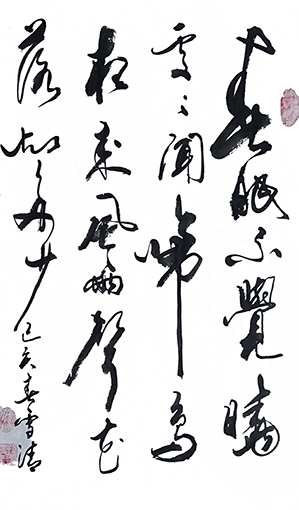 春眠不覺曉
處々聞啼鳥
夜來風雨聲花
落知多少 己亥春雪清